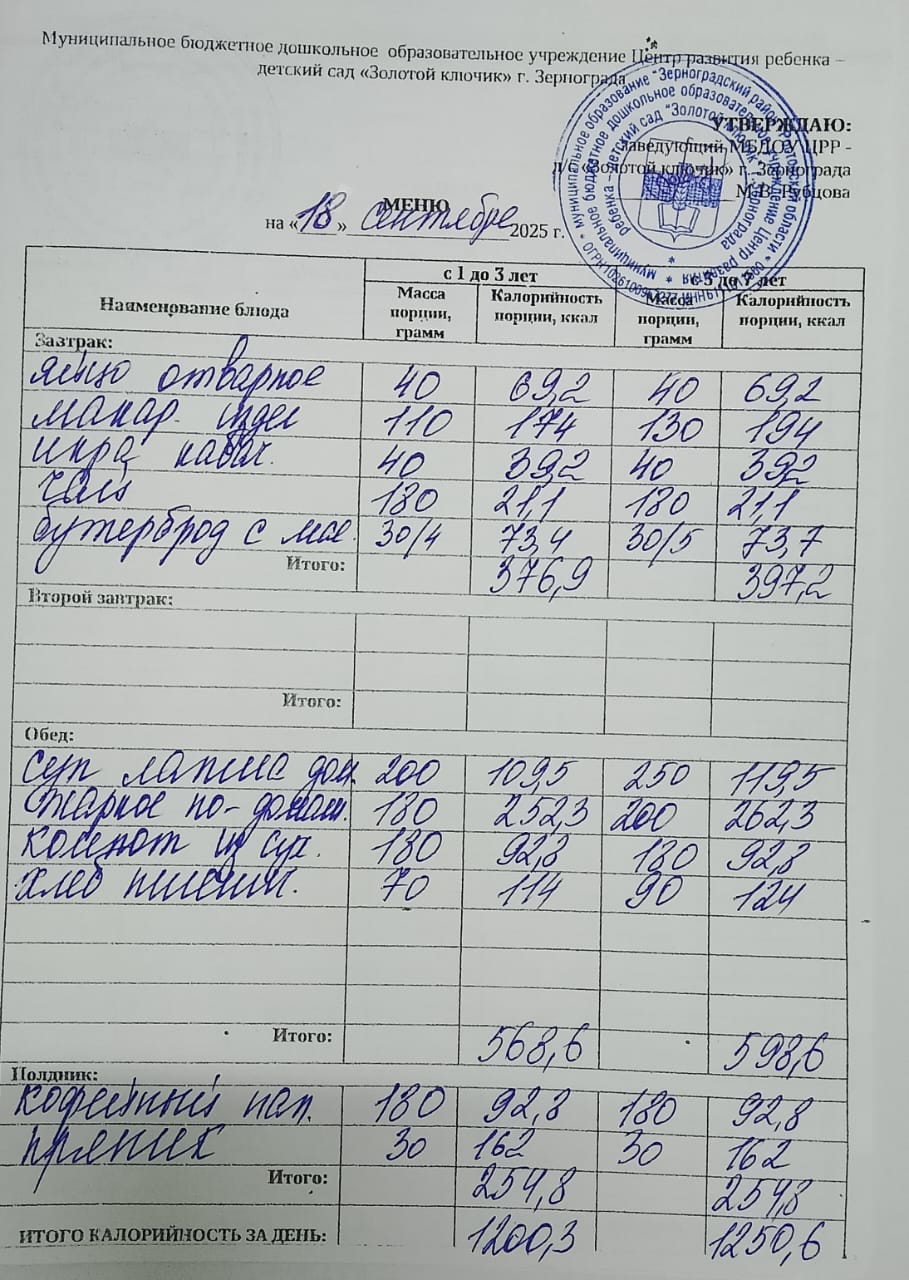 Муниципальное бюджетное дошкольное образовательное учреждение Центр развития ребенка –
детский сад «Золотой ключик» г. Зернограда
УТВЕРЖДАЮ:
Заведующий МБДОУ ЦРР -
д/с «Золотой ключик» г. Зернограда
М.В. Рубцова
МЕНЮ
на «18» сентября 2025 г.
Наименование блюда с 1 до 3 лет с 3 до 7 лет
Масса порции, грамм Калорийность порции, ккал Масса порции, грамм Калорийность порции, ккал
Завтрак:
яйцо отварное 40 69,2 40 69,2
макар. издел 110 174 130 194
икра кабач. 40 39,2 40 39,2
чай 180 21,1 180 21,1
бутерброд с мас. 30/4 73,4 30/5 73,7
Итого: 376,9 397,2
Второй завтрак:
Итого:
Обед:
суп лапша дом. 200 109,5 250 119,5
жаркое по-домаш. 180 252,3 200 262,3
компот из сух. 180 92,8 180 92,8
хлеб пшенич. 70 114 90 124
Итого: 568,6 598,6
Полдник:
кофейный нап. 180 92,8 180 92,8
пряник 30 162 30 162
Итого: 254,8 254,8
ИТОГО КАЛОРИЙНОСТЬ ЗА ДЕНЬ: 1200,3 1250,6